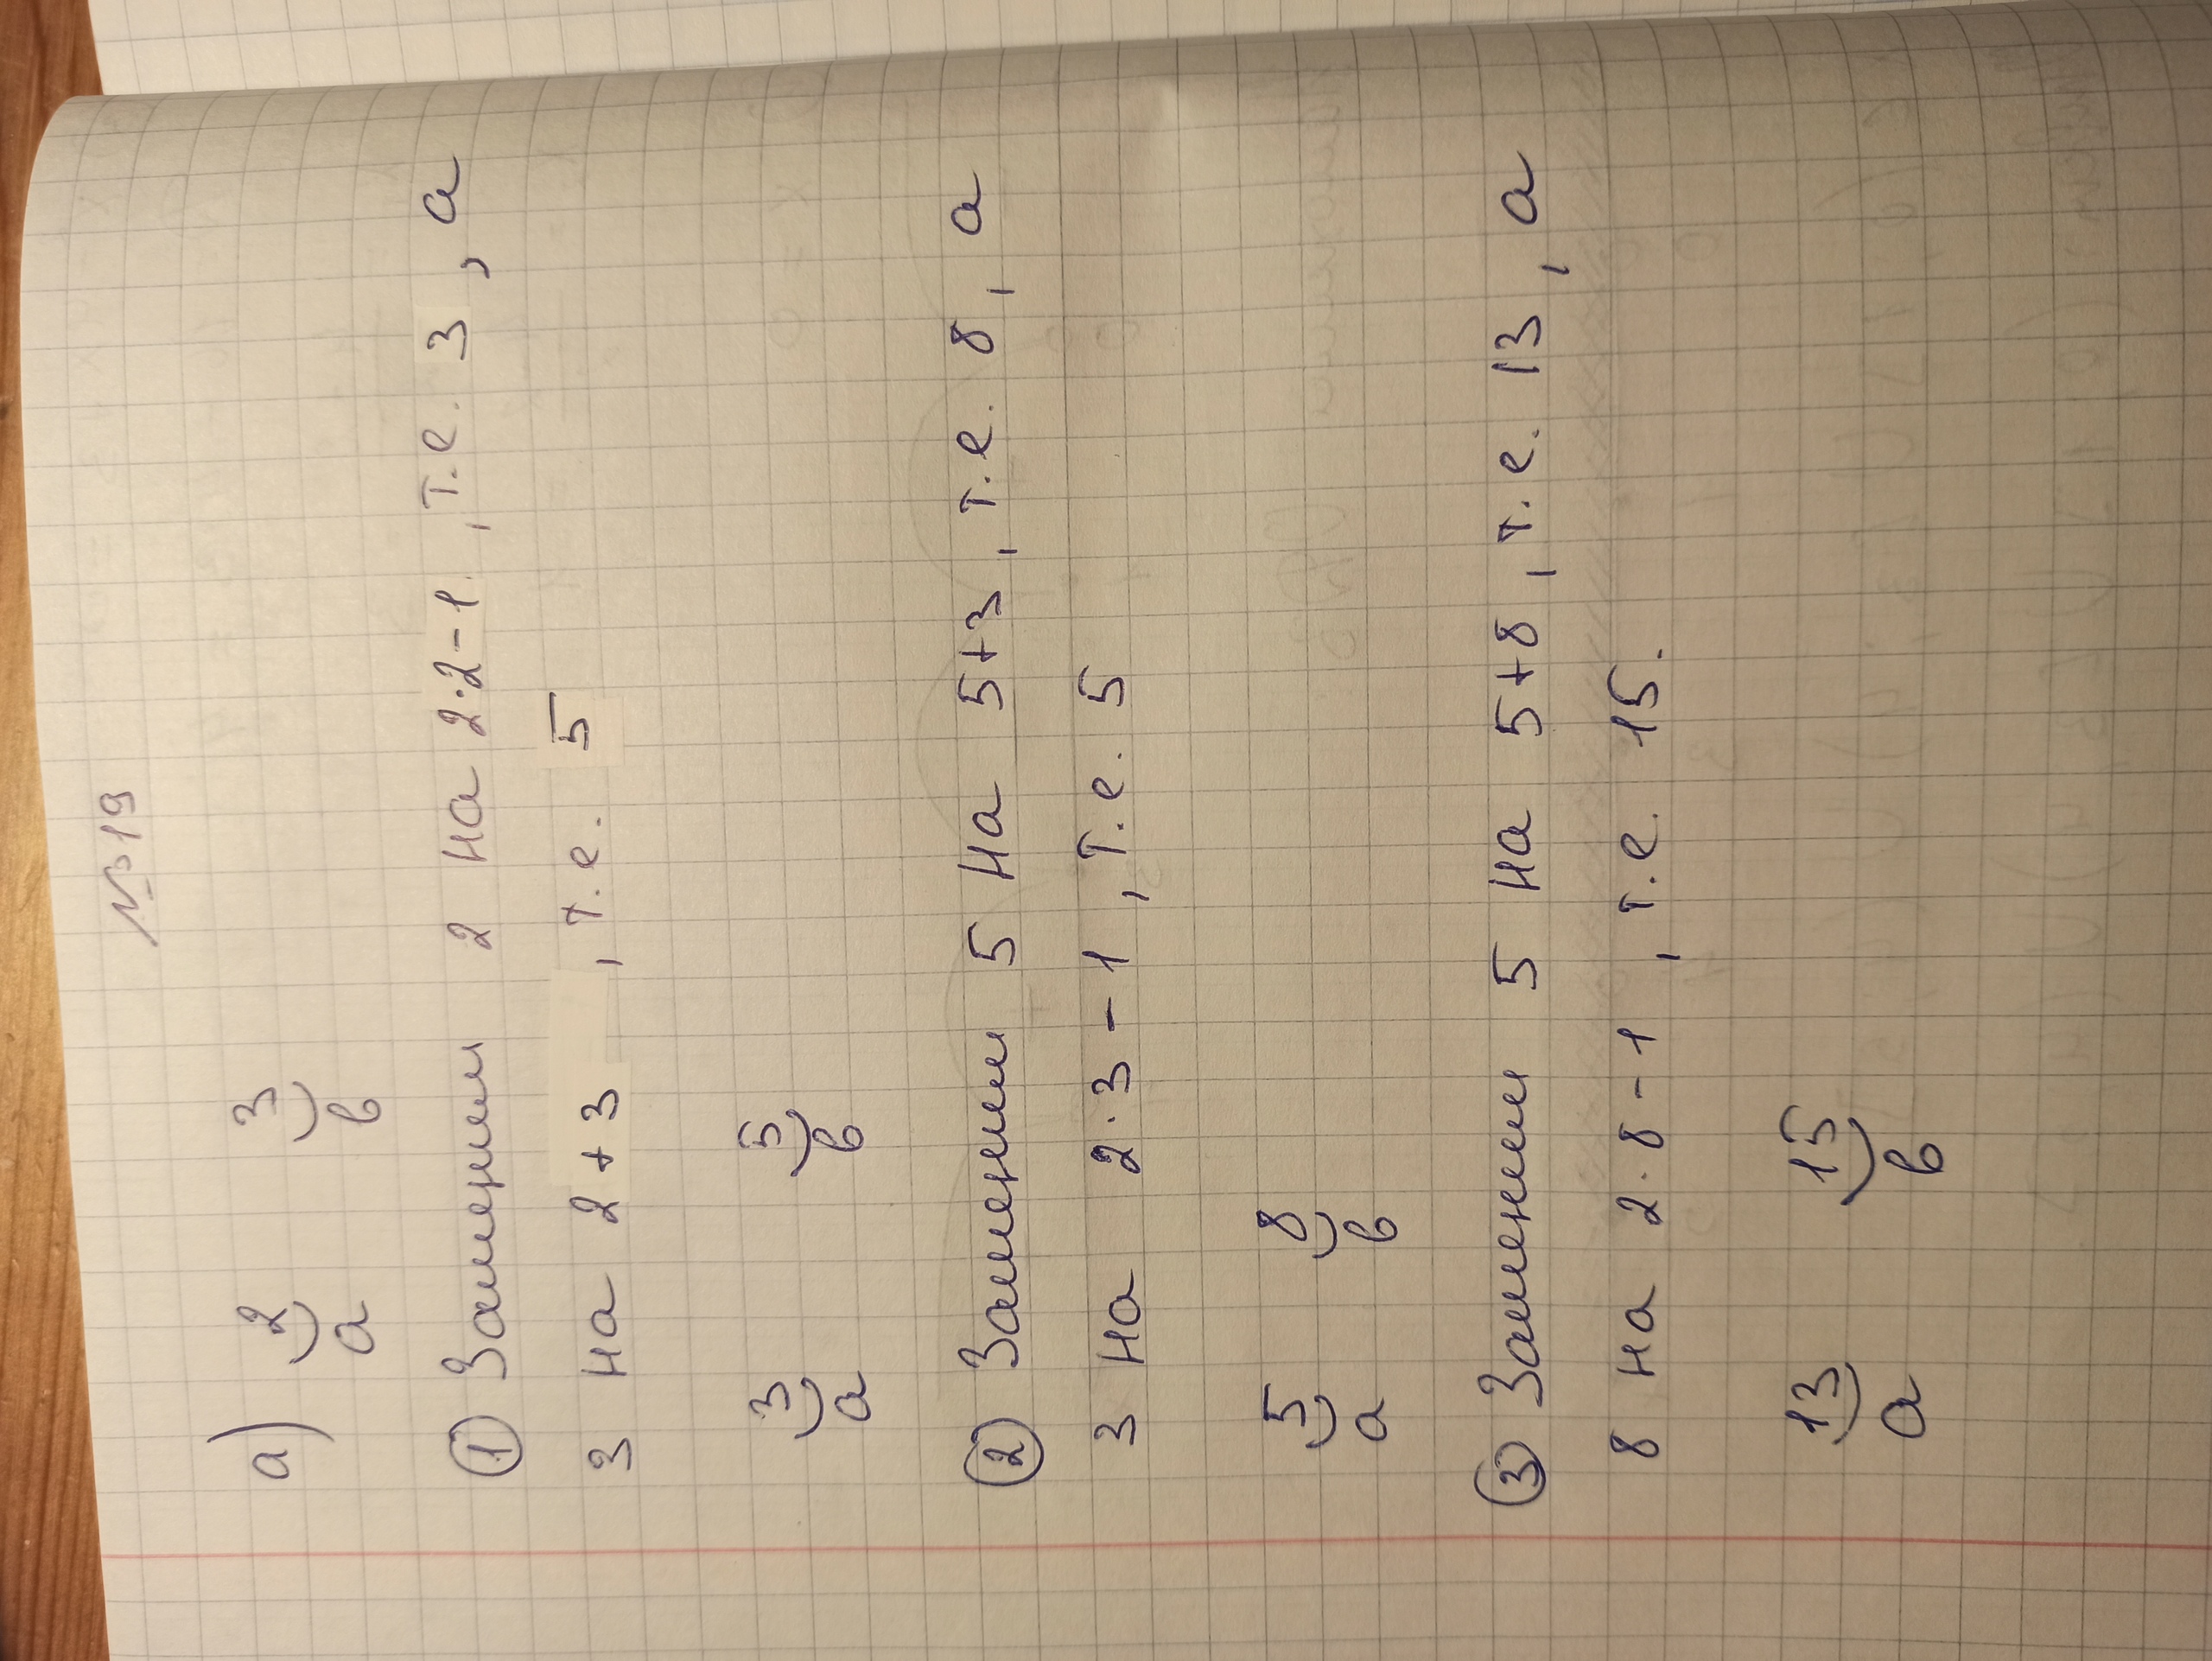 №19
а) 2 3
а в
① Заменим 2 на 2·2-1, т.е. 3, а
3 на 2+3, т.е. 5
3 5
а в
② Заменим 5 на 5+3, т.е. 8, а
3 на 2·3-1, т.е. 5
5 8
а в
③ Заменим 5 на 5+8, т.е. 13, а
8 на 2·8-1, т.е. 15.
13 15
а в